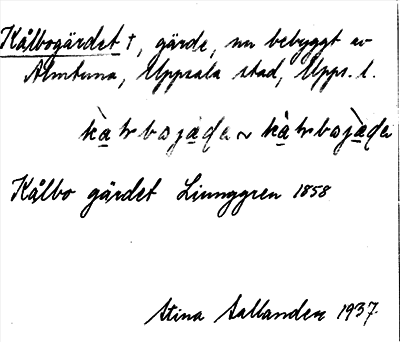 Kålbogärdet †, gärde, nu bebyggt av
Almtuna, Uppsala stad, Upps. l.
Kålbo gärdet Ljunggren 1858
Stina Sallander 1937